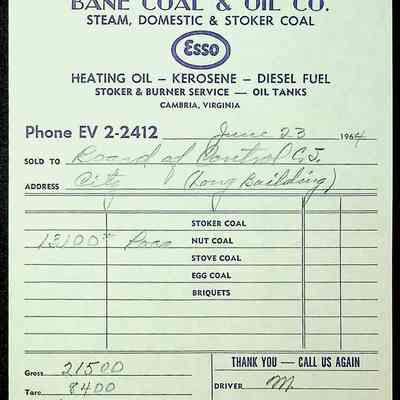 BANE COAL & OIL CO.
STEAM, DOMESTIC & STOKER COAL
Esso
HEATING OIL – KEROSENE – DIESEL FUEL
STOKER & BURNER SERVICE — OIL TANKS
CAMBRIA, VIRGINIA
Phone EV 2-2412 June 23 1964
SOLD TO Board of Control C.J.
ADDRESS City (Long Building)
STOKER COAL
13100# Poco NUT COAL
STOVE COAL
EGG COAL
BRIQUETS
Gross 21500
THANK YOU — CALL US AGAIN
Tare 8400
DRIVER M